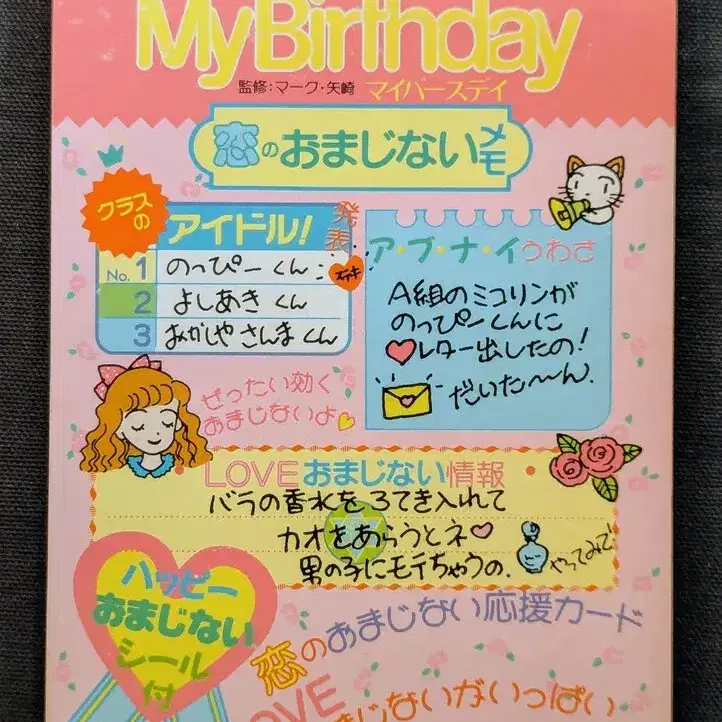 MyBirthday
監修：マーク・矢崎 マイバースデイ
恋のおまじないメモ
クラスの
アイドル!
発表
No.1 のっぴーくん
ステキ
2 よしあき くん
3 あかしや さんま くん
ア・ブ・ナ・イうわさ
A組のミコリンが
のっぴーくんに
レター出したの!
だいた〜〜ん.
ぜったい効く
おまじないよ
LOVEおまじない情報
バラの香水を3てき入れて
カオをあらうとネ♡
男の子にモテちゃうの.
やってみて
ハッピー
おまじない
シール
付
恋のおまじない応援カード
LOVE
まじないがいっぱい